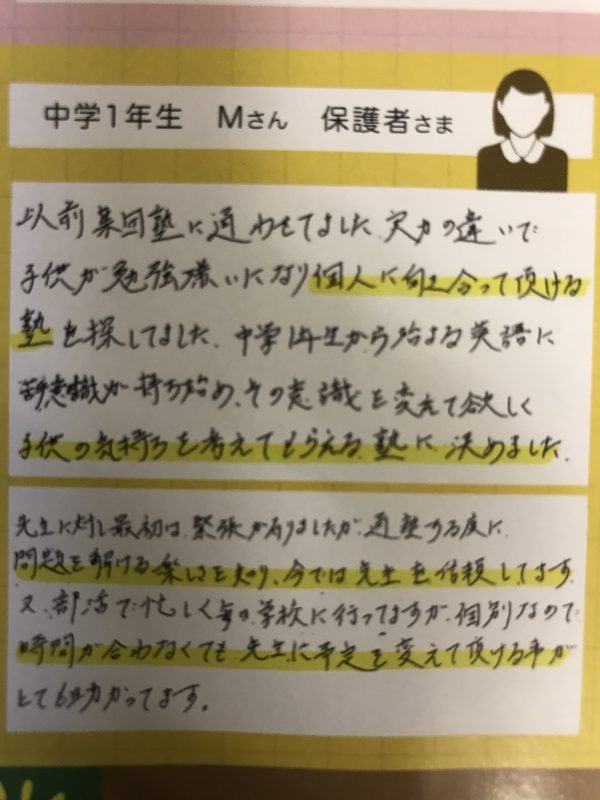 中学1年生 Mさん 保護者さま
以前集団塾に通わせてました。実力の違いで
子供が勉強嫌いになり個人に向き合って頂ける
塾を探してました。中学1年生から始まる英語に
苦手意識が持ち始め、その意識を変えて欲しく
子供の気持ちを考えてもらえる塾に決めました。
先生に対し最初は、緊張が有りましたが、通塾する度に、
問題を解ける楽しさを知り、今では先生を信頼してます。
又、部活で忙しく毎日学校に行ってますが、個別なので、
時間が合わなくても、先生に予定を変えて頂ける事が
とても助かってます。